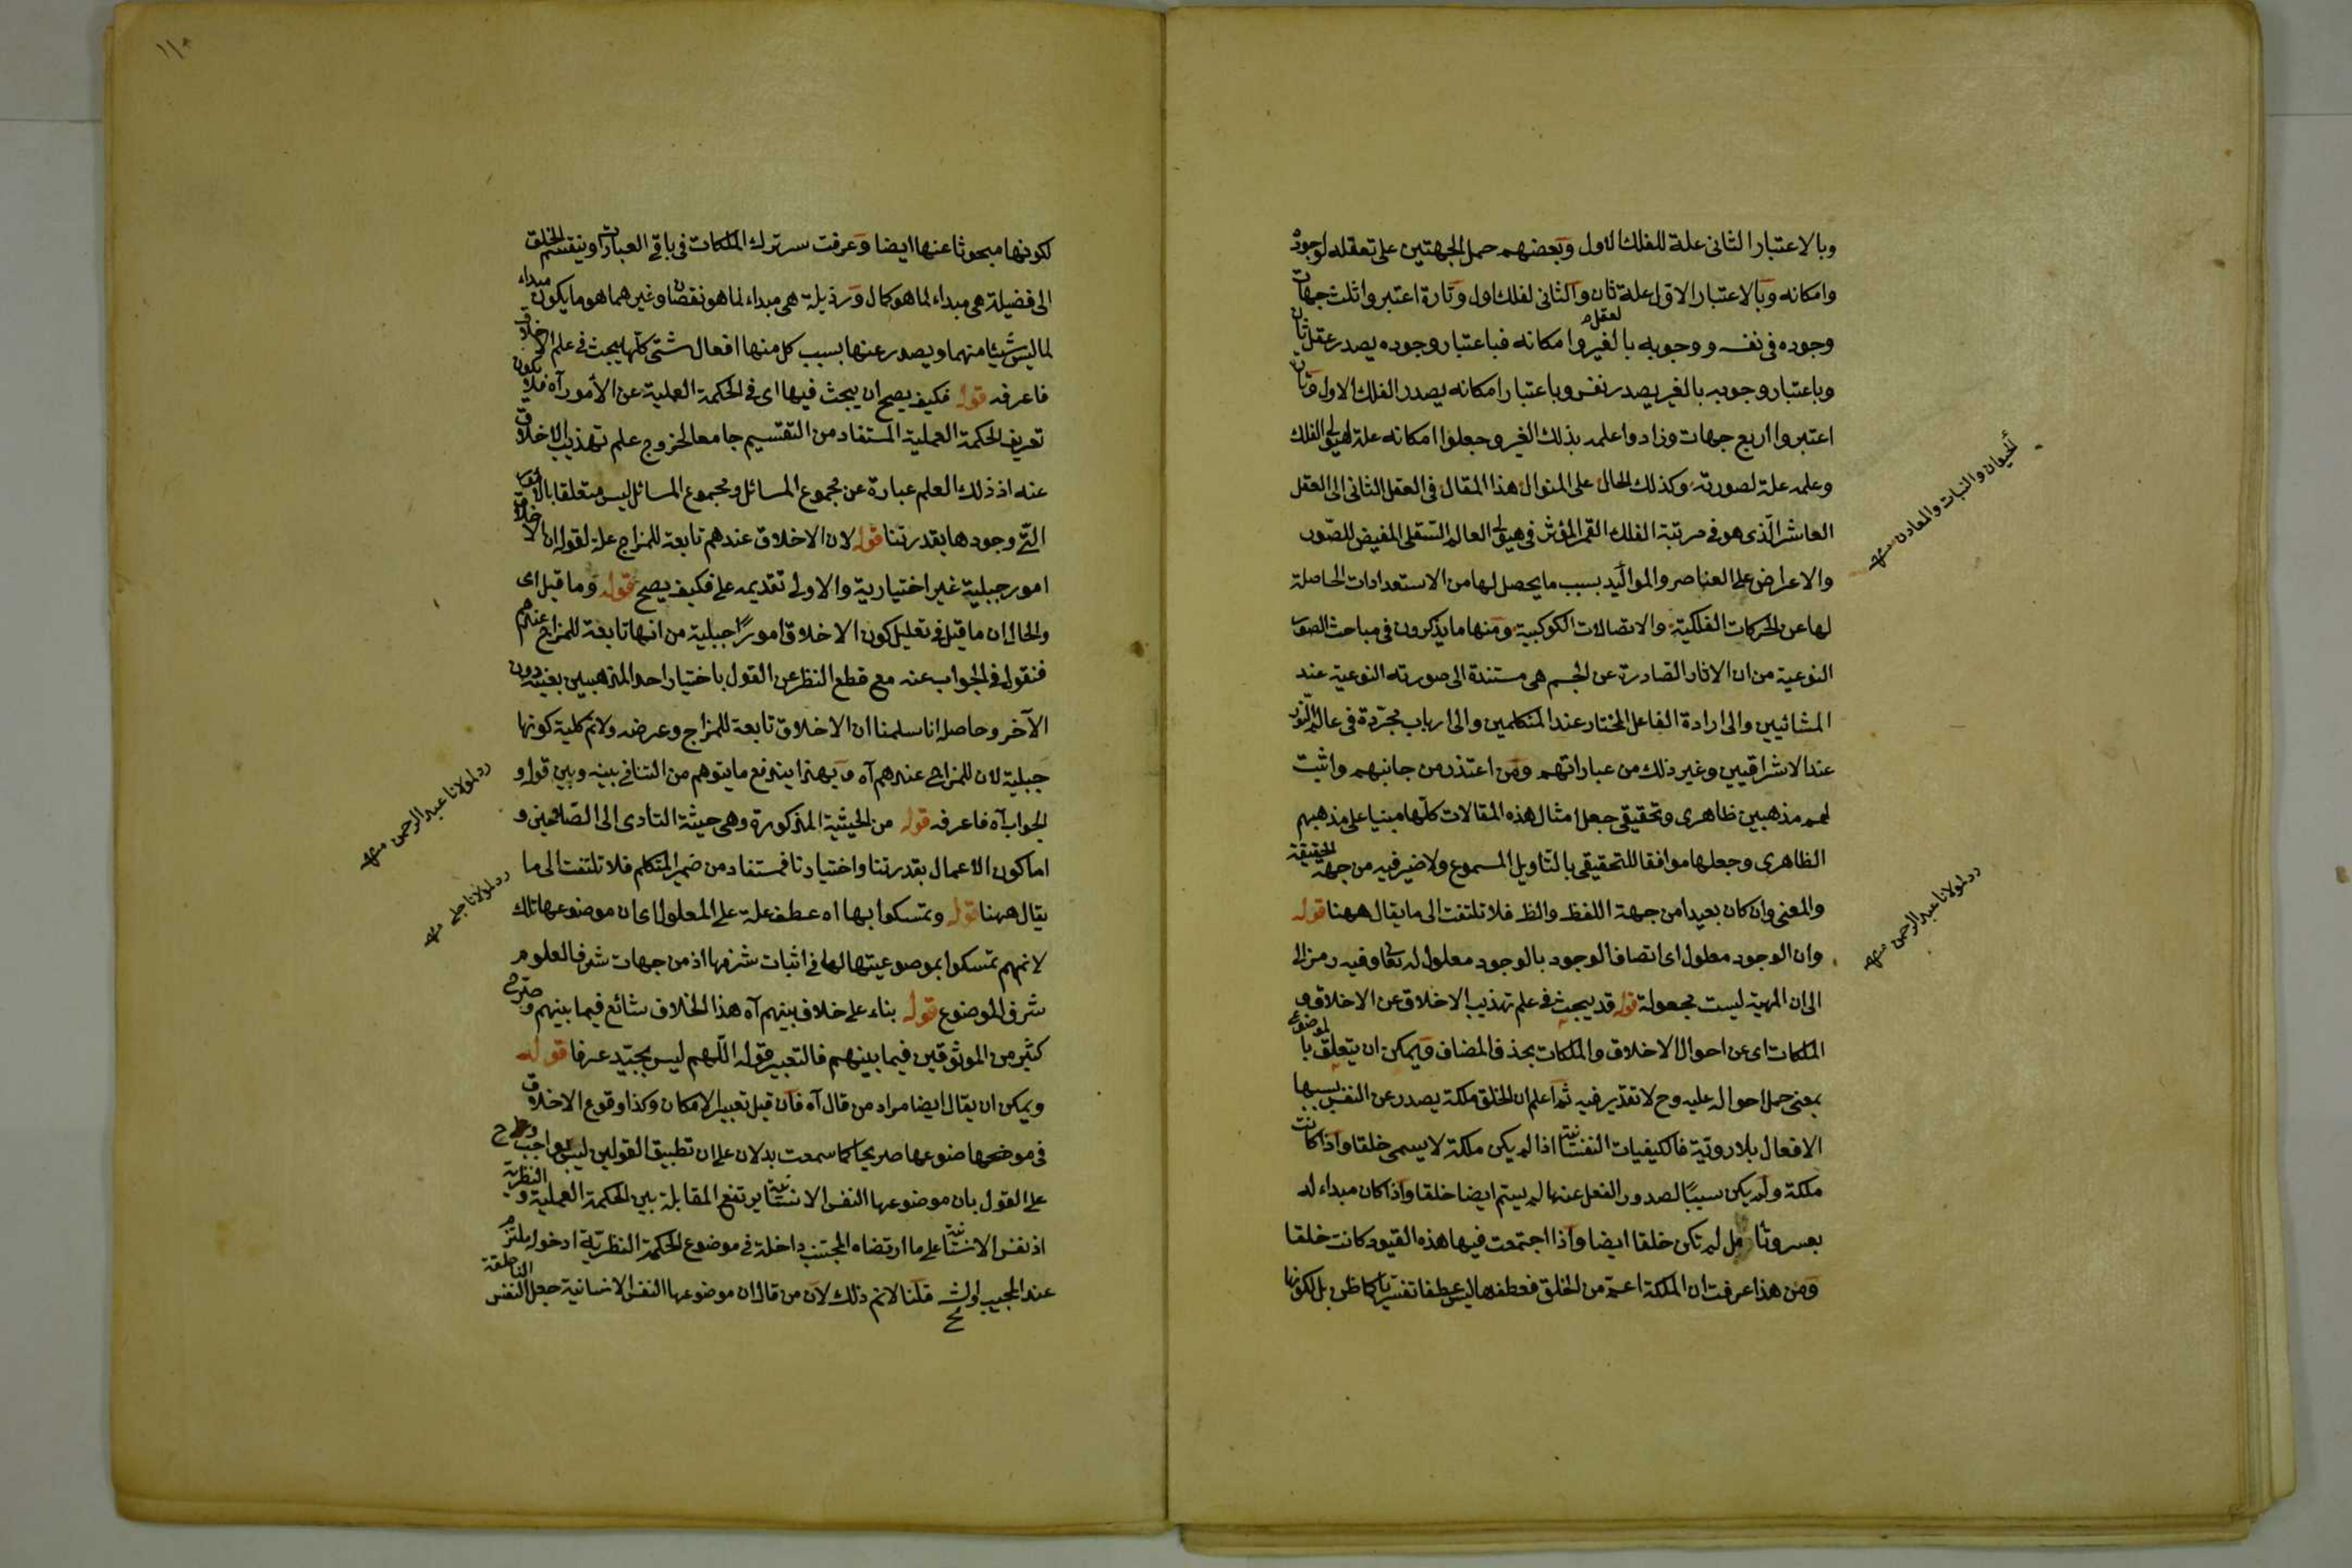 وبالاعتبار الثانى علة للفلك الاول وبعضهم حمل الجهتين على تعقله لوجوده
وامكانه وبالاعتبار الاول علة ثان والثانى لفلك اول وتارة اعتبروا ثلث جهات
وجوده فى نفسه ووجوبه بالغير وامكانه فباعتبار وجوده يصدر عقل ثان
وباعتبار وجوبه بالغير يصدر نفس وباعتبار امكانه يصدر الفلك الاول وتارة
اعتبروا اربع جهات وزادوا علمه بذلك الغير وجعلوا امكانه علة لهيولى الفلك
وعلمه علة لصورته وكذلك الحال على المنوال هذا المقال فى العقل الثانى الى العقل
العاشر الذى هو فى مرتبة الفلك القمر المؤثر فى هيولى العالم السفلى المفيض للصور
والاعراض على العناصر والمواليد بسبب ما يحصل لها من الاستعدادات الحاصلة
لها عن الحركات الفلكية والاتصالات الكوكبية ومنها ما يذكرون فى مباحث الصورة
النوعية من ان الاثار الصادرة عن الجسم هى مستندة الى صورته النوعية عند
المشائيين والى ارادة الفاعل المختار عند المتكلمين والى ارباب مجردة فى عالم النور
عند الاشراقيين وغير ذلك من عباراتهم ومن اعتذر من جانبهم واثبت
لهم مذهبين ظاهرى وتحقيقى جعل امثال هذه المقالات كلها مبنيا على مذهبهم
الظاهرى وجعلها موافقا للتحقيقى بالتاويل المسموع ولا ضير فيه من جهة الحقيقة
والمعنى وان كان بعيدا من جهة اللفظ والظ فلا تلتفت الى ما يقال ههنا قوله
وان الوجود معلول اى اتصاف الوجود بالوجود معلول له تعا وفيه رمز الى
الى ان المهية ليست مجعولة قوله قد يبحث فى علم تهذيب الاخلاق عن الاخلاق و
الملكات اى عن احوال الاخلاق والملكات بحذف المضاف ويمكن ان يتعلق بالموضوع
بمعنى حمل احواله عليه وح لا تقدير فيه ثم اعلم ان الخلق ملكة يصدر عن النفس بسببها
الافعال بلا روية فالكيفيات النفسانية اذا لم يكن ملكة لا يسمى خلقا واذا كانت
ملكة ولم يكن سببا لصدور الفعل عنها لم يسم ايضا خلقا واذا كان مبداء له
بعسر وتامل لم تكن خلقا ايضا واذا اجتمعت فيها هذه القيود كانت خلقا
ومن هذا عرفت ان الملكة اعم من الخلق فعطفها ليس عطفا تفسيريا كما ظن بل لكونها
كالحيوان والنبات والمعادن منه
رد لمولانا عبد الرحمن منه
١١٠
لكونها مبحوثا عنها ايضا وعرفت سر ترك الملكات فى باقى العبارات وينقسم الخلق
الى فضيلة هى مبداء لما هو كمال ورذيلة هى مبداء لما هو نقصان وغيرهما هو ما يكون مبداء
لما ليس شيئا منهما ويصدر عنها بسبب كل منها افعال شتى كلها يبحث فى علم الاخلاق
فاعرفه قوله فكيف يصح ان يبحث فيها اى فى الحكمة العملية عن الأمور آه فلا يكون
تعريف الحكمة العملية المستفاد من التقسيم جامعا لخروج علم تهذيب الاخلاق
عنه اذ ذلك العلم عبارة عن مجموع المسائل ومجموع المسائل ليس متعلقا بالامور
التى وجودها بقدرتنا قوله لان الاخلاق عندهم تابعة للمزاج علة لقوله ان الاخلاق
امور جبلية غير اختيارية والاولى تقديمه على فكيف يصح قوله وما قيل اى
والحال ان ما قيل فى تعليل كون الاخلاق امورا جبلية من انها تابعة للمزاج عندهم
فنقول فى الجواب عنه مع قطع النظر عن القول باختيار احد المذهبين بعينه دون
الآخر وحاصله انا سلمنا ان الاخلاق تابعة للمزاج وعرضه ولانم كلية كونها
جبلية لان للمزاج عندهم آه وبهذا يندفع ما يتوهم من التنافى بينه وبين قوله و
الجواب آه فاعرفه قوله من الحيثية المذكورة وهى حيثية التادى الى الصلاحين و
اما كون الاعمال بقدرتنا واختيارنا فمستفاد من ضمير المتكلم فلا تلتفت الى ما
يقال ههنا قوله وتمسكوا بها اه عطف علة على المعلول اى ان موضوعها تلك
لانهم تمسكوا بموضوعيتها لها فى اثبات شرفها اذ من جهات شرف العلوم
شرف الموضوع قوله بناء على خلاف بينهم آه هذا الخلاف شائع فيما بينهم وصرح
كثير من الموثوقين فيما بينهم فالتعبير بقوله اللهم ليس بجيد عرفا قوله
ويمكن ان يقال ايضا مراد من قال آه فان قيل تعبير الامكان وكذا وقوع الاخلاق
فى موضعها ضوعها صريحا كما سمعت يدلان على ان تطبيق القولين ليس بواجب
على القول بان موضوعها النفس الانسانية يرتفع المقابلة بين الحكمة العملية والنظرية
اذ نفس الانسانية على ما ارتضاه المجتنب داخلة فى موضوع الحكمة النظرية ادخوله ملتزم
عند المجيب اولش قلنا لانم ذلك لان من قال ان موضوعها النفس الانسانية جعل النفس الناطقة
رد لمولانا عبد الرحمن منه
رد لمولانا جلبى منه